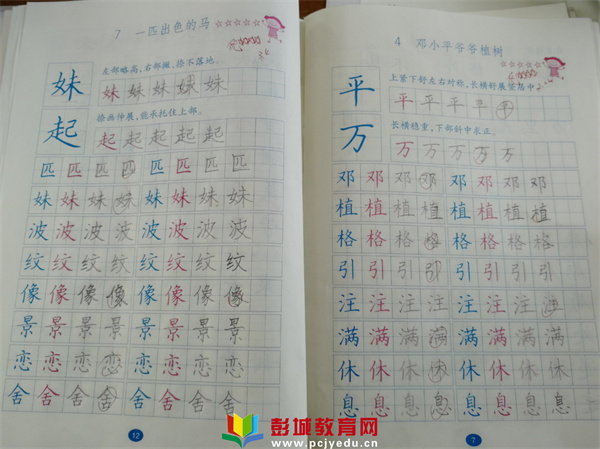 7 一匹出色的马 ☆☆☆☆☆
左部略高，右部撇、捺不落地。
妹 妹 妹 妹 妹 妹
捺画伸展，能承托住上部。
起 起 起 起 起 起
匹 匹 匹 匹 匹 匹 匹 匹
妹 妹 妹 妹 妹 妹 妹 妹
波 波 波 波 波 波 波 波
纹 纹 纹 纹 纹 纹 纹 纹
像 像 像 像 像 像 像 像
景 景 景 景 景 景 景 景
恋 恋 恋 恋 恋 恋 恋 恋
舍 舍 舍 舍 舍 舍 舍 舍
12
4 邓小平爷爷植树
☆☆☆☆☆
上紧下舒左右对称，长横舒展竖居中。
平 平 平 平 平 平
长横稳重，下部斜中求正。
万 万 万 万 万 万
邓 邓 邓 邓 邓 邓 邓 邓
植 植 植 植 植 植 植 植
格 格 格 格 格 格 格 格
引 引 引 引 引 引 引 引
注 注 注 注 注 注 注 注
满 满 满 满 满 满 满 满
休 休 休 休 休 休 休 休
息 息 息 息 息 息 息 息
7
彭城教育网
www.pcjyedu.cn